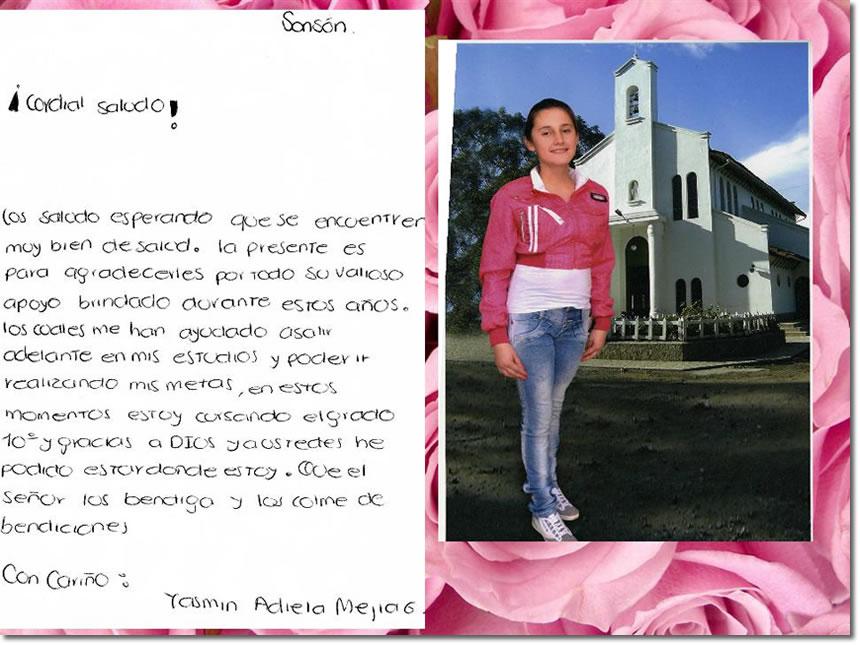 Sonsón.
¡Cordial saludo!
Los saludo esperando que se encuentren
muy bien de salud. la presente es
para agradecerles por todo su valioso
apoyo brindado durante estos años.
los cuales me han ayudado a salir
adelante en mis estudios y poder ir
realizando mis metas, en estos
momentos estoy cursando el grado
10º y gracias a DIOS y a ustedes he
podido estar donde estoy. Que el
señor los bendiga y los colme de
bendiciones
Con Cariño:
Yasmin Adiela Mejia G.